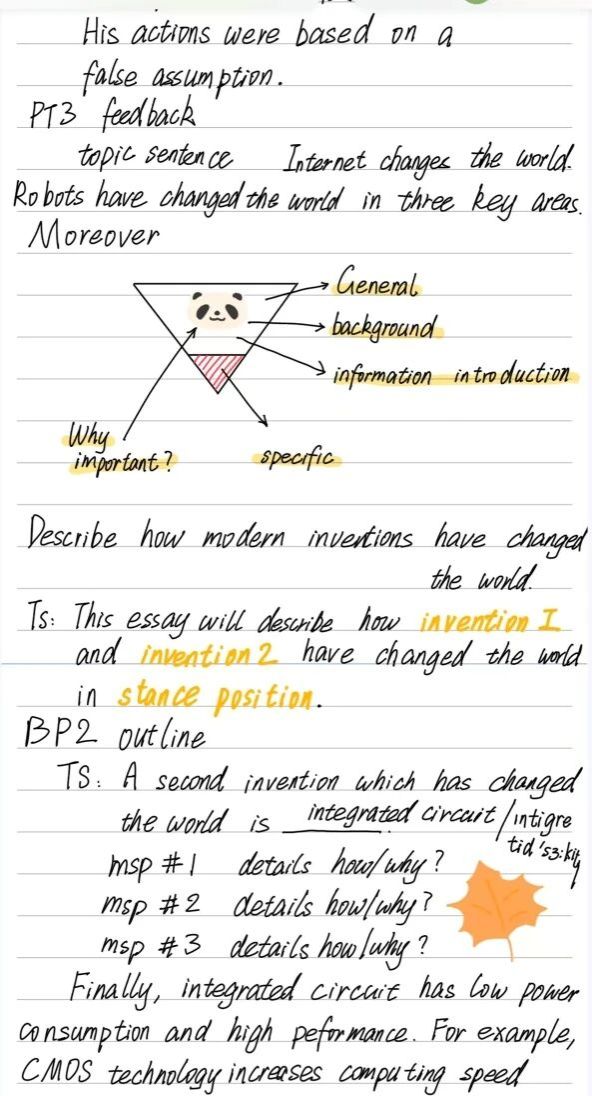 His actions were based on a
false assumption.
PT3 feedback
topic sentence Internet changes the world.
Robots have changed the world in three key areas.
Moreover
General
background
information introduction
Why
important?
specific
Describe how modern inventions have changed
the world.
Ts: This essay will describe how invention I
and invention 2 have changed the world
in stance position.
BP2 outline
TS: A second invention which has changed
the world is integrated circuit /intigre
tid 's3:kit
msp #1 details how/why?
msp #2 details how/why?
msp #3 details how/why?
Finally, integrated circuit has low power
consumption and high peformance. For example,
CMOS technology increases computing speed